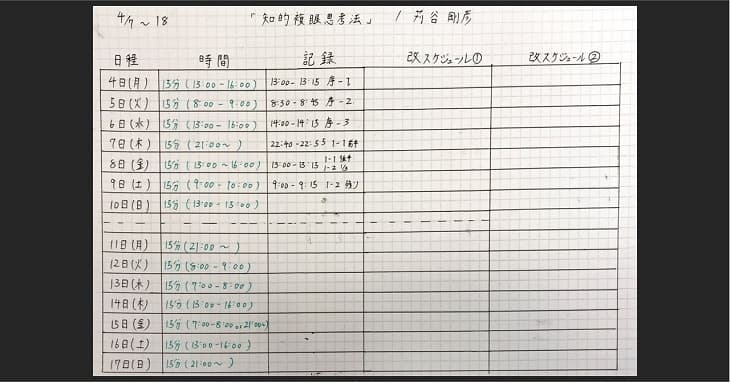 4/4 ~ 18 「知的複眼思考法」 / 苅谷剛彦
日程 時間 記録 改スケジュール① 改スケジュール②
4日(月) 15分 (13:00-16:00) 13:00-13:15 序-1
5日(火) 15分 (8:00-9:00) 8:30-8:45 序-2
6日(水) 15分 (13:00-16:00) 14:00-14:15 序-3
7日(木) 15分 (21:00~) 22:40-22:55 1-1前半
8日(金) 15分 (13:00~16:00) 13:00-13:15 1-1後半 1-2 1/3
9日(土) 15分 (9:00-10:00) 9:00-9:15 1-2 残り
10日(日) 15分 (13:00-15:00)
11日(月) 15分 (21:00~)
12日(火) 15分 (8:00-9:00)
13日(水) 15分 (7:00-8:00)
14日(木) 15分 (13:00-16:00)
15日(金) 15分 (7:00-8:00 or 21:00~)
16日(土) 15分 (13:00-16:00)
17日(日) 15分 (21:00~)